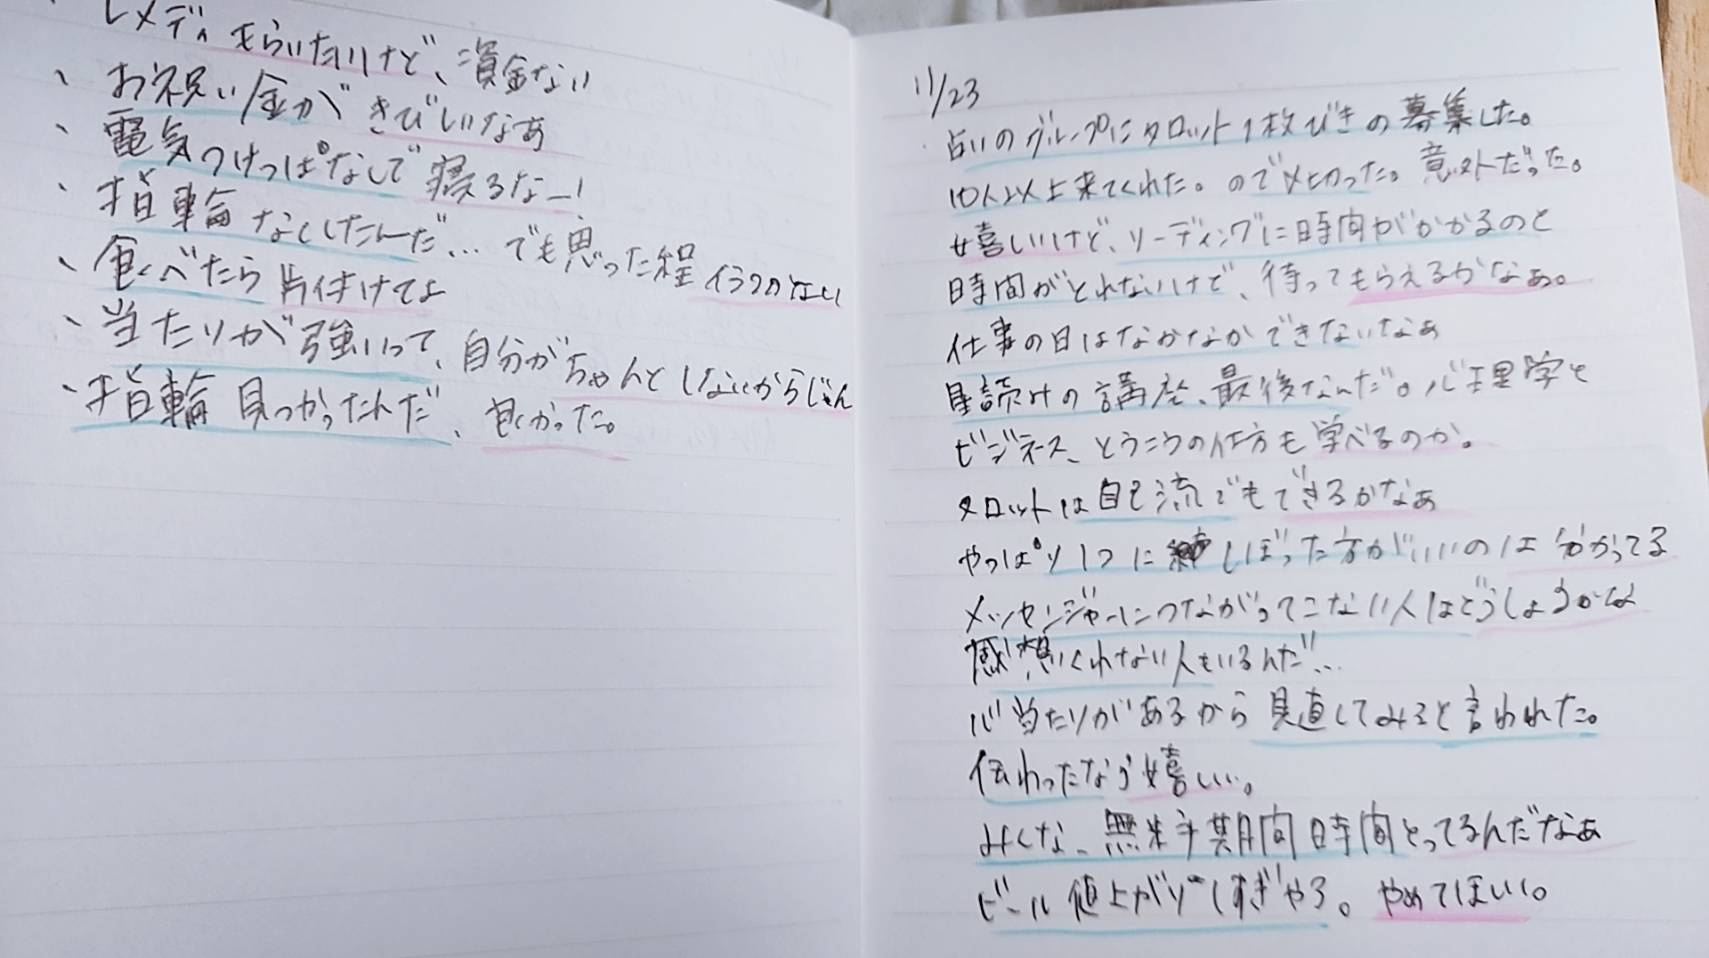 レメディもらいたいけど、資金ない
、お祝い金がきびしいなぁ
、電気つけっぱなしで寝るなー!
、指輪なくしたんだ…でも思った程イラつかない
、食べたら片付けてよ
、当たりが強いって、自分がちゃんとしないからじゃん
、指輪見つかったんだ、良かった。
11/23
占いのグループにタロット1枚びきの募集した。
10人以上来てくれた。ので〆切った。意外だった。
嬉しいけど、リーディングに時間がかかるのと
時間がとれないけど、待ってもらえるかなぁ。
仕事の日はなかなかできないなぁ
星読みの講座、最後なんだ。心理学と
ビジネス、とうこうの仕方も学べるのか。
タロットは自己流でもできるかなぁ
やっぱり1つにしぼった方がいいのは分かってる
メッセンジャーにつながってこない人はどうしようかな
感想くれない人もいるんだ…
心当たりがあるから見直してみると言われた。
伝わったなら嬉しい。
みんな、無料期間時間とってるんだなぁ
ビール値上がりしすぎやろ。やめてほしい。